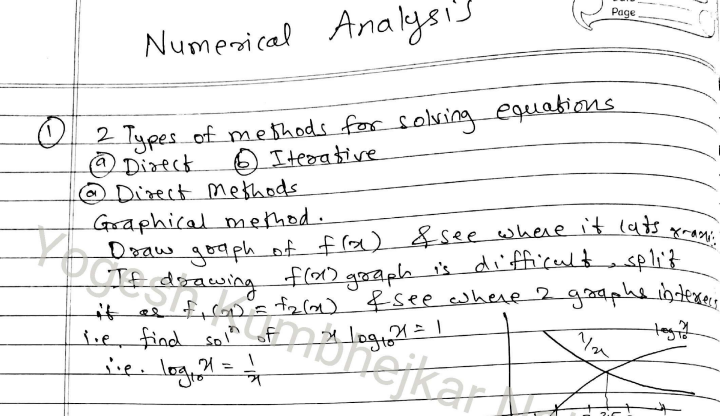 Page
Numerical Analysis
① 2 Types of methods for solving equations
ⓐ Direct ⓑ Iterative
ⓐ Direct methods
Graphical method.
Draw graph of f(x) & see where it cuts x-axis
If drawing f(x) graph is difficult, split
it as f₁(x) = f₂(x) & see where 2 graphs intersec
i.e. find solⁿ of x log₁₀x = 1
i.e. log₁₀x = 1/x
1/x
log₁₀x
Yogesh Kumbhejkar N